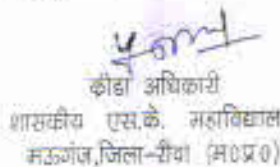 कीडा अधिकारी
शासकीय एस.के. महाविद्याल
मऊगंज,जिला-रीवा (म०प्र०)